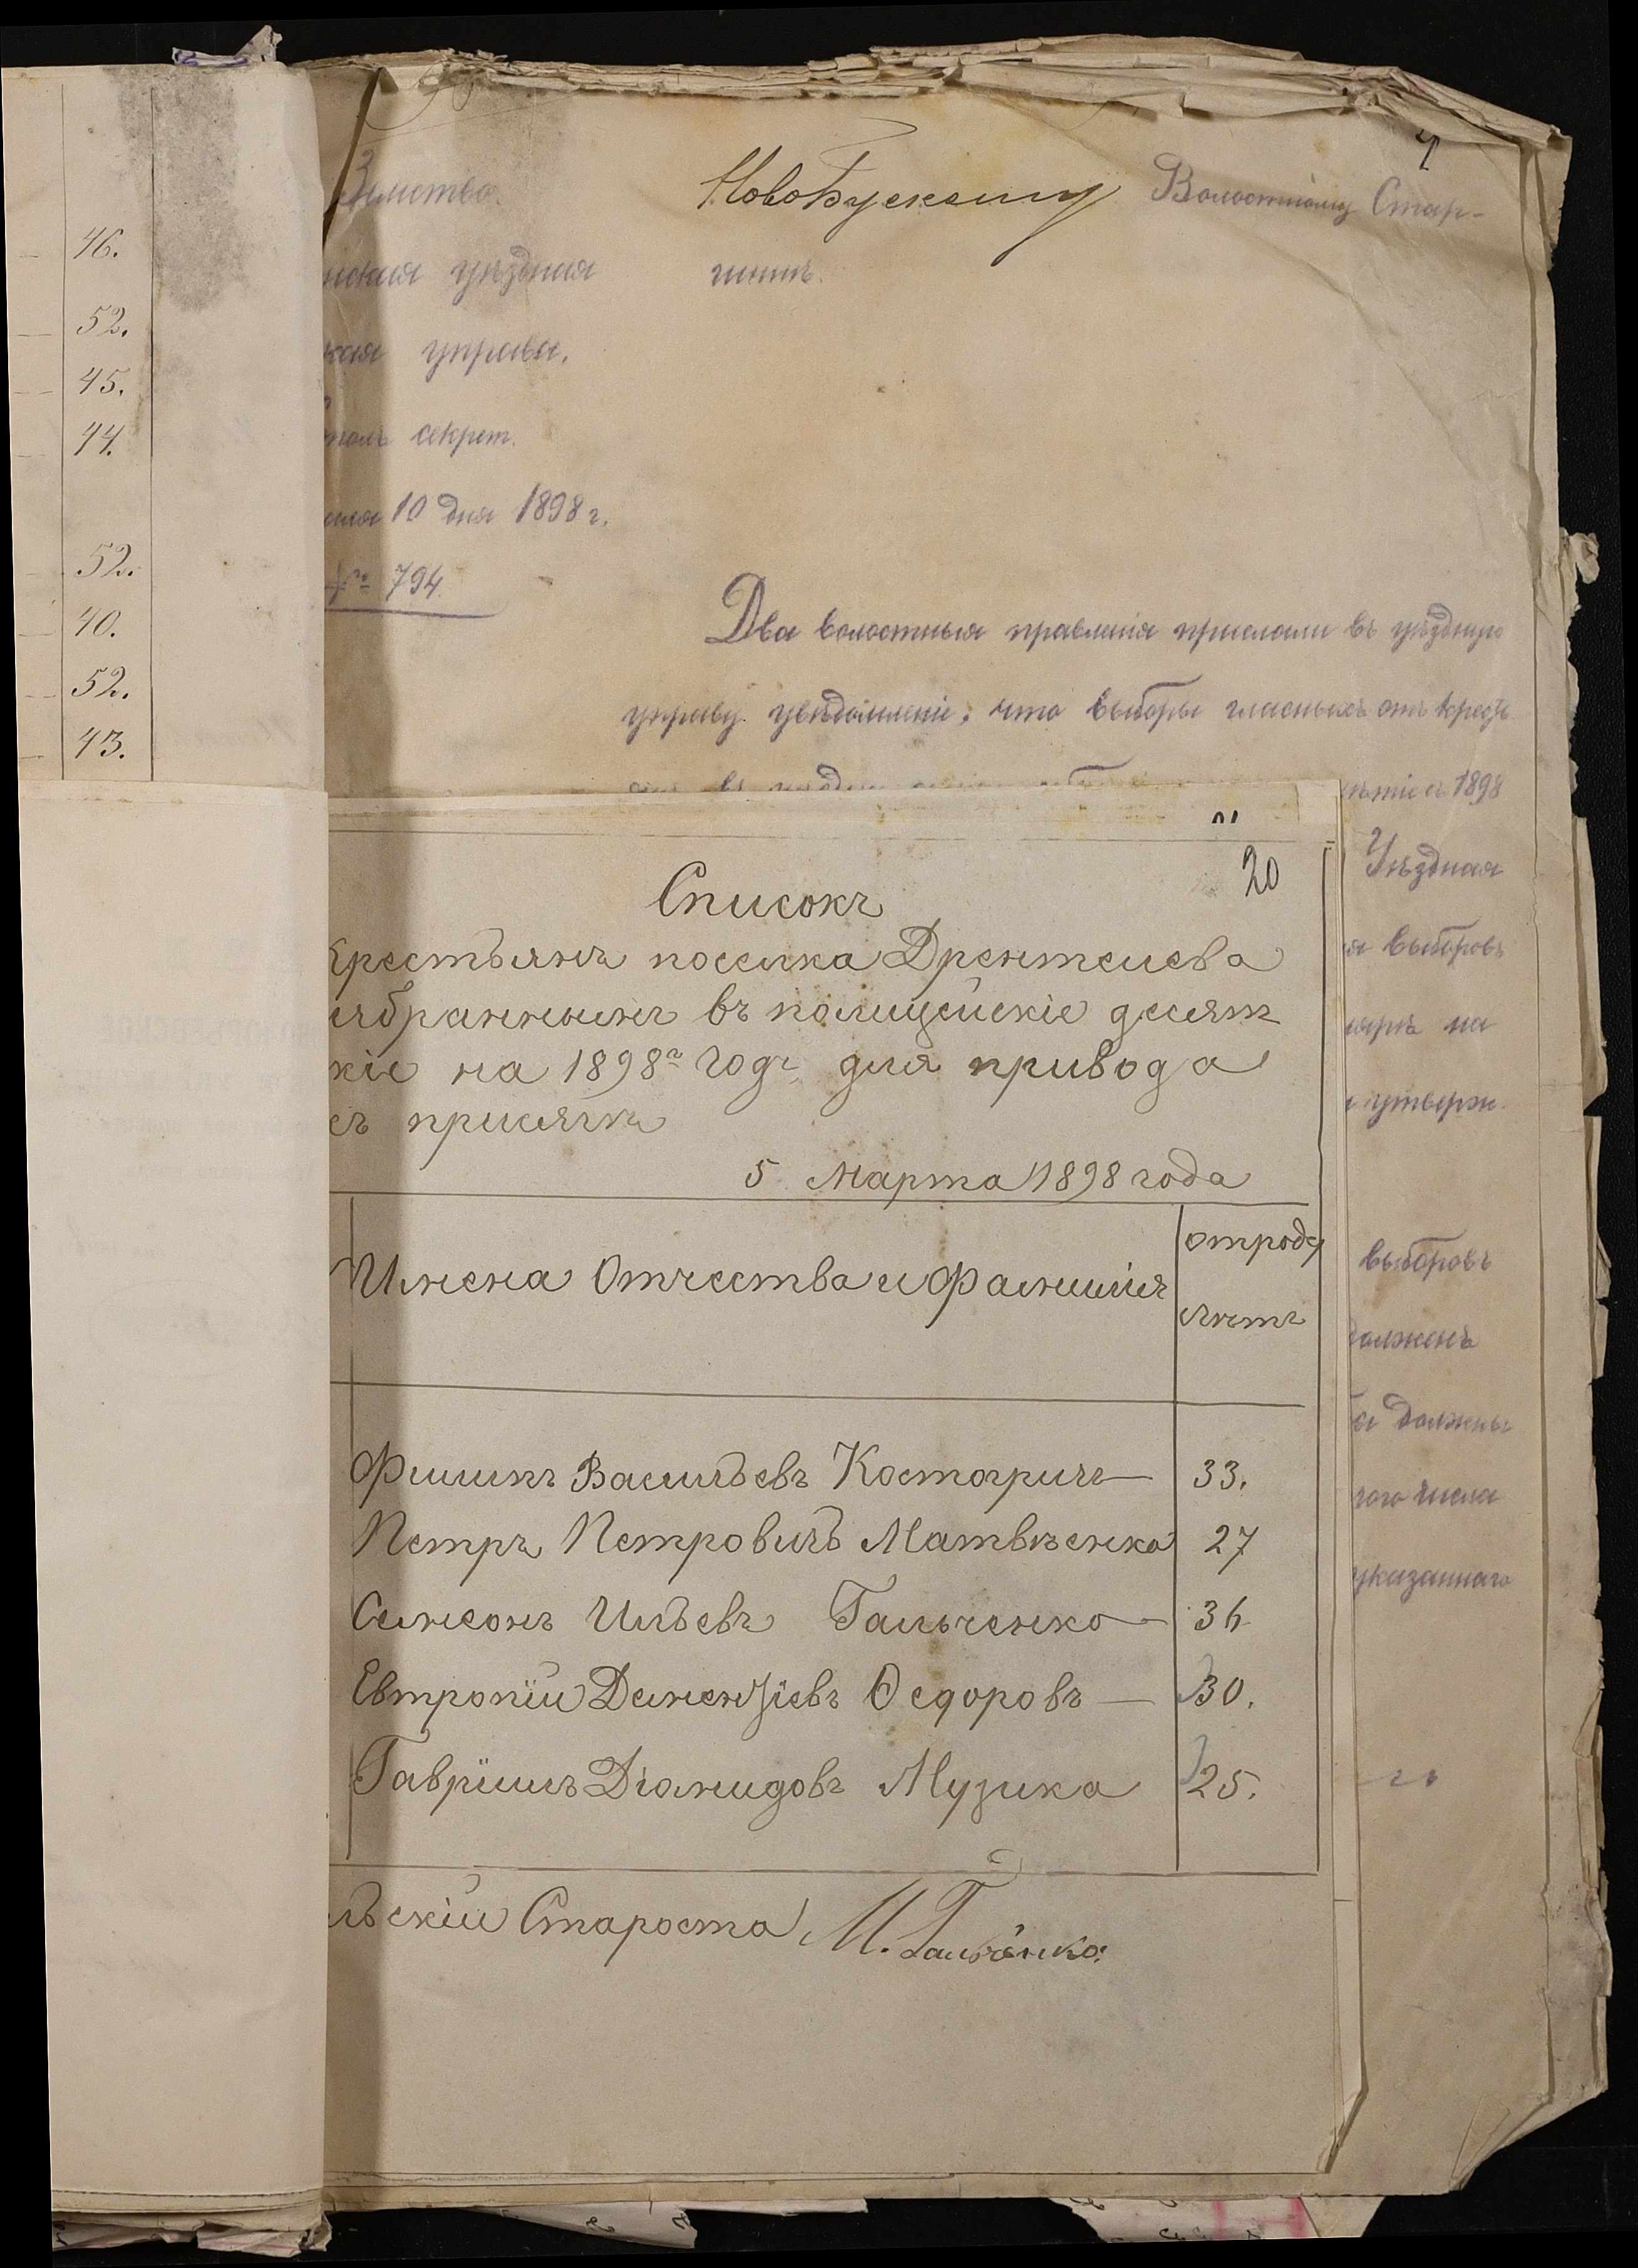 46.
52.
45.
44.
52.
40.
52.
43.
Земство.
НовоБугскому Волостному Стар-
шинѣ.
уѣздная
управа.
секрет.
10 дня 1898 г.
№ 794.
Два волостныя правленія прислали въ уѣздную
управу увѣдомленіе, что выборы гласныхъ отъ кресть
1898
Уѣздная
выборовъ
на
утверж.
выборовъ
долженъ
должны
числа
указаннаго
20
Списокъ
крестьянъ поселка Дрентелева
избраннымъ въ полицейскіе десят
кіе на 1898й годъ, для привода
къ присягѣ
5 Марта 1898 года
Имена Отчества и Фамилія
отроду
лѣтъ
Филипъ Васильевъ Костогризъ 33.
Петръ Петровичъ Матвѣенко 27
Симеонъ Ильевъ Гальченко 36
Евтропій Дементіевъ Ѳедоровъ 30.
Гавріилъ Діомидовъ Музика 25.
льскій Староста М. Гальченко.